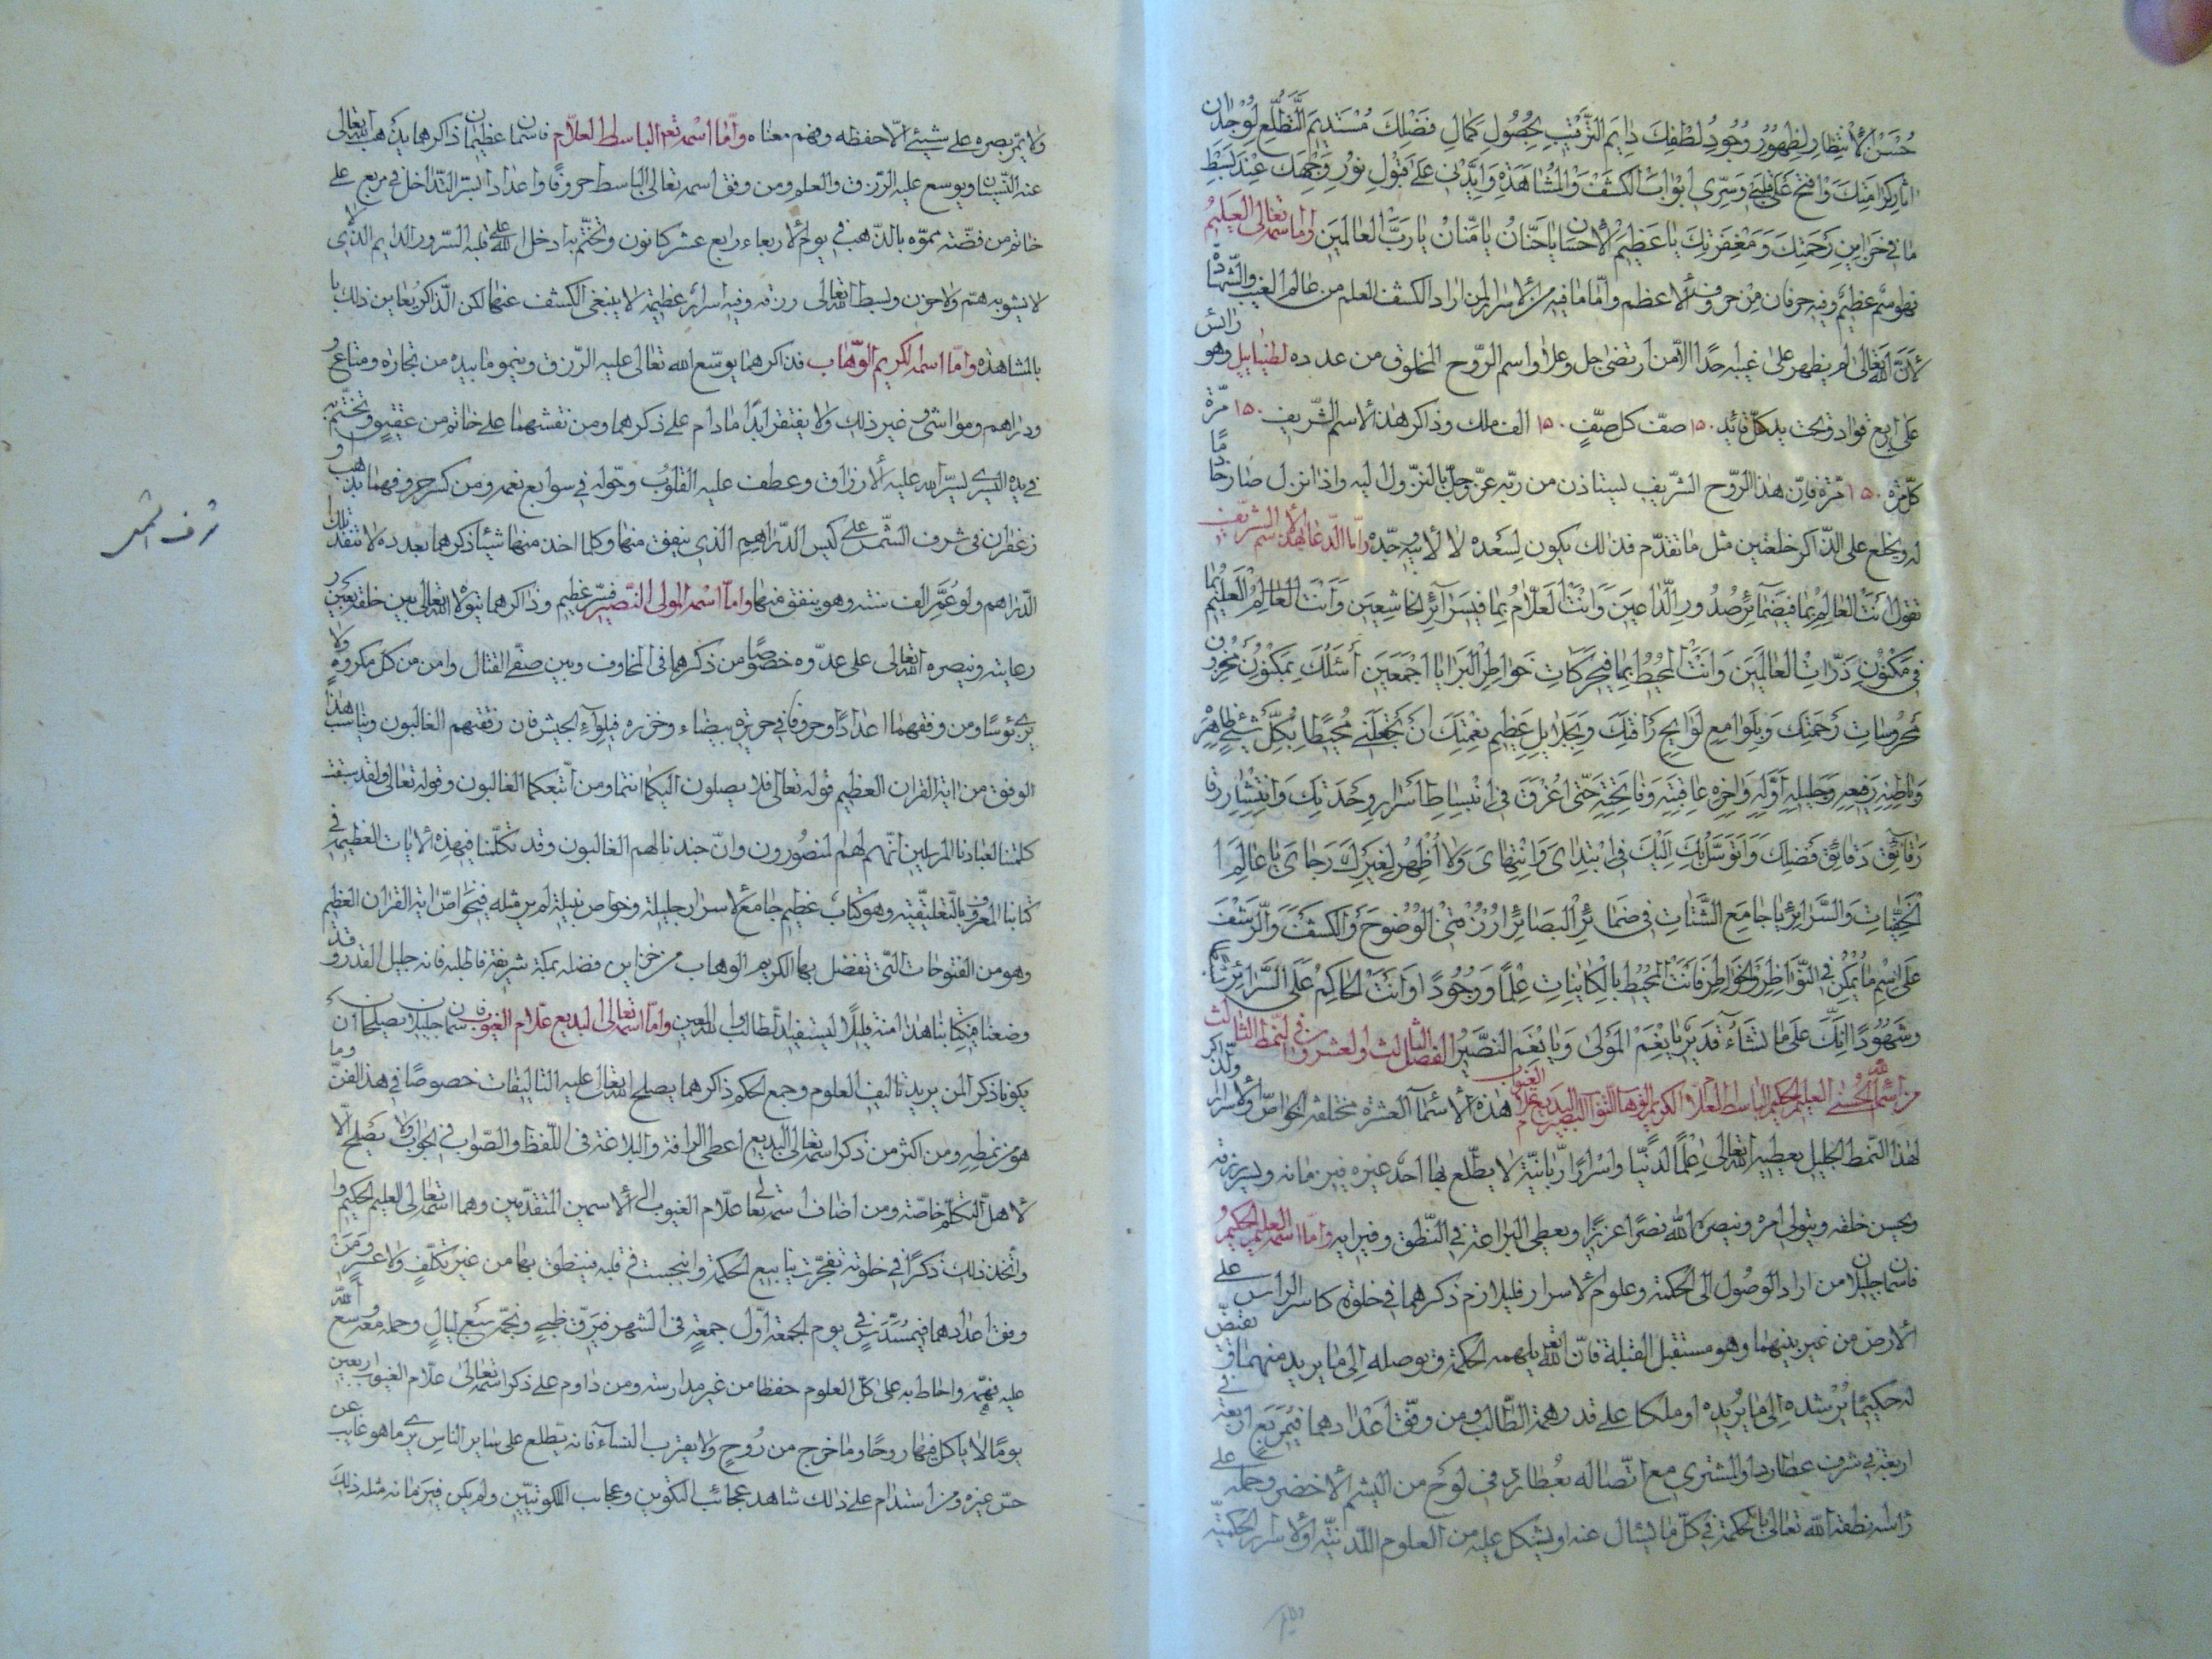 حُسْنَ الْأَنْتِظارِ لِظُهُورِ وُجُودِ لُطْفِكَ دايَمَ التَّرَقُّبِ لِحُصُولِ كَمالِ فَضْلِكَ مُسْتَديمَ التَّطَلُّعِ لِوُجْدانِ
اثارِ كَرامَتِكَ وَافْتَحْ عَلى قَلْبي وَسِرّي ابْوابَ الْكَشْفِ وَالْمُشاهَدَةِ وَايَّدْني عَلى قَبُولِ نُورِ وَجْهِكَ عِنْدَ بَسْطِ
ما في خَزايِنِ رَحْمَتِكَ وَمَغْفِرَتِكَ يا عَظيمَ الْأِحْسانِ يا حَنّانُ يا مَنّانُ يا رَبَّ الْعالَمينَ وامّا اسمه تعالى العليمُ
فهو اسمٌ عظيمٌ وفيه حرفان مِنْ حروف الأعظم وامّا ما فيه من الأسرار لمن اراد الكشف العلم من عالم الغيب والشّهادة
لأنّ الله تعالى لم يظهر على غيبه احدًا الّا من ارتضى جل وعلا واسم الرّوح المخلوق من عدده لطيائيل وهو رائس
على اربع قواد وتحت يد كلّ قائد ١٥٠ صفّ كل صفٍّ ١٥٠ الف ملك وذاكر هذا الأسم الشّريف ١٥٠ مرّة
كلّ مرّة ١٥٠ مرّة فانّ هذا الرّوح الشّريف يستاذن من ربّه عزّ وجلّ بالنّزول اليه واذا نزل صار خادمًا
له ويخلع على الذّاكر خلعتين مثل ما تقدّم فذلك يكون لسعده لا لأبيه وجدّه وامّا الدّعا لهذا الأسم الشريف
تقول انْتَ الْعالِمُ بِما في ضَمآئِرِ صُدُورِ الدّاعينَ وَانْتَ الْعَلّامُ بِما في سَرآئِرِ الْخاشِعينَ وَانْتَ الْعالِمُ الْعَليمُ بِما
في مَكْنُونِ ذَرّاتِ الْعالَمينَ وَانْتَ الْمُحيطُ بِما في حَرَكاتِ خَواطِرِ الْبَرايا اجْمَعينَ أَسْئَلُكَ بِمَكْنُونِ مَخْزُونِ
مَحْرُوساتِ رَحْمَتِكَ وَبِلَوامِعِ لَوايِحِ رَأْفَتِكَ وَبِجَلايِلِ عَظيمِ نِعْمَتِكَ انْ تَجْعَلَني مُحيطًا بِكُلِّ شَيْئٍ ظاهِرِهِ
وَباطِنِهِ رَفيعِهِ وَجَليلِهِ اَوَّلِهِ وَاخِرِهِ عاقِبَتِهِ وَفاتِحَتِهِ حَتّى اغْرَقَ فى انْبِساطِ أَسْرارِ وَحْدَتِكَ وَانْتِشارِ
رَقآئِقِ دَقآئِقِ فَضْلِكَ وَاتَوَسَّلُ بِكَ الَيْكَ فى ابْتِداىَ وَانْتِهاىَ وَلا اُظْهِرُ لِغَيْرِكَ رَجاىَ يا عالِمَ
الْخَفِيّاتِ وَالسَّرائِرِ يا جامِعَ الشَّتاتِ في ضَمائِرِ الْبَصائِرِ ارْزُقْنى الْوُضُوحَ وَالْكَشْفَ وَالرَّشْفَ
عَلَى اسْمِ ما يُمْكِنُ فِى النَّواظِرِ وَالْخَواطِرِ فَانْتَ الْمُحيطُ بِالْكايِناتِ عِلْمًا وَوُجُودًا وَانْتَ الْحاكِمُ عَلَى السَّرائِرِ
وَشُهُودًا انَّكَ عَلى ما تَشاءُ قَديرٌ يا نِعْمَ الْمَوْلى وَيا نِعْمَ النَّصيرُ الفصل الثالث والعشرون في النّمط الثالث
من اسماء الله الحُسنى العليم الحكيم الباسط العلّام الكريم الوهّاب البديع علّام الغيوب هذه الأسمآ العشرة مختلفة الخواصّ والأسرار
لهذا النّمط الجليل يعطيه الله تعالى عِلْمًا لدنّيا واسْرارًا رَبّانيّة لا يطّلع بها احد غيره في زمانه وييسر رزقه
ويحسن خلقه ويتولى امره وينصره الله نصرًا عزيزًا ويعطى البراعة في النّطق وامّا اسمه العليم الحكيمُ
فانهما اسمان جليلان من اراد الوصُول الى الحكمة وعلوم الأسرار فليلازم ذكرهما في خلوة كاسر الراس على
الأرض من غير بينهما وهو مستقبل القبلة فانّ الله تعالى يلهمه الحكمة ويوصله الى ما يريد منهما
له حكيمًا يُرشده الى ما يُريده او ملكا على قدر همّة الطّالب ومن وفّق اعدادهما في مربّع اربعة في
اربعة في شرف عطارد او المشترى مع اتّصاله بعُطارد فى لوح من اليشم الأخضر وحمله على
راسه نطقه الله تعالى بالحكمة في كلّ ما يسئال عنه او يشكل عليه من العلوم اللّدنيّة والأسرار الحكميّة
ولا يمرّ بصره على شيئ الّا حفظه وفهم معناه وامّا اسمه تع الباسط العلّام فانهما عظيمان ذاكرهما يذهب الله تعالى
عنه النّسيان ويوسع عليه الرّزق والعلم ومن وفق اسمه تعالى الباسط حروفًا واعدادا بسرّ التّداخل في مربع على
خاتم من فضّة مموّه بالذّهب في يوم الأربعاء رابع عشر كانون وتختّم به ادخل الله على قلبه السّرور الدايم الذى
لا يشوبه همّ ولا حزن وبسط الله تعالى رزقه وفيه اسرار عظيمة لا ينبغى الكشف عنها لكن الذّاكر يُعاين ذلك با
بالمشاهدة وامّا اسمه الكريم الوهّاب فذاكرهما يوسّع الله تعالى عليه الرّزق وينمو ما بيده من تجارة ومتاع و
ودراهم ومواشى وغير ذلك ولا يفتقر ابدًا ما دام على ذكرهما ومن نقشهما على خاتم من عقيق وتختّم
في يده اليسرى يسّر الله عليه الأرزاق وعطف عليه القلوب وحوّله في سوابغ نعمه ومن كسر حروفهما بذهب او
زعفران في شرف الشّمس على كيس الدّراهم الذى ينفق منها وكلما اخذ منها شيئًا ذكرهما بعدده لا تنفد تلك
الدّراهم ولو عُمِّر الف سنة وهو ينفق منها وامّا اسمه المولى النّصير فسرّ عظيم وذاكرهما يتولّاه الله تعالى بين خلقه بعين
رعايته وينصره الله تعالى على عدّوه خصوصًا من ذكرهما فى المخاوف وبين صفّى القتال وامن من كل مكروه ولا
يرى بُوسًا ومن وفقهما اعدادًا وحروفا في حريرة بيضاء وخرزه في لِوآءِ الجيش فان رفقتهم الغالبون ويناسب هذا
الوفق من اية القران العظيم قوله تعالى فلا يصلون اليكما انتما ومن اتّبعكما الغالبون وقوله تعالى ولقد سبقت
كلمتنا لعبادنا المرسلين انّهم لهم المنصُورون وانّ جندنا لهم الغالبون وقد تكلّمنا في هذه الأيات العظيمه في
كتابنا المعروف بالتعليقيّة وهو كتاب عظيم جامع لأسرار جليلة وخواص نبيلة لم ير مثله في خواصّ اية القران العظيم
وهو من الفتوحات التّى تفضل بها الكريم الوهاب من خزاين فضله بمكّة شريفة فاطلبه فانه جليل القدر وقد
وضعنا في كتابنا هذا منه قليلًا ليستفيد الطالب والله المعين وامّا اسمه تعالى البديع علّام الغيوب فانهما اسمان جليلان يصلحان ان
يكونا ذكرا لمن يريد تاليف العلوم وجمع الحكم ذاكرهما يصلح الله تعالى عليه التاليفات خصوصًا في هذ الفنّ وما
هو من نمطه ومن اكثر من ذكر اسمه تعالى البديع اعطى الرافة والبلاغة فى اللّفظ والصّواب في الجواب ولا يصلح الّا
لأهل التكلّم خاصّة ومن اضاف اسمه تعالى علّام الغيوب الى الأسمين المتقدّمين وهما اسمه تعالى العليم الحكيم و
واتّخذ ذلك ذكرًا في خلوته تفجّرت ينابيع الحكمة وانبجست في قلبه فينطق بها من غير تكلّفٍ ولا عُسرٍ وَمَنْ
وفق اعدادهما في مُسدّس في يوم الجمعة اوّل جمعةٍ فى الشهر في رقّ ظبى ونجّمه سبع ليالٍ وحمله معه وسّع الله
عليه فهمه واحاط به على كلّ العلوم حفظا من غير مدارسة ومن داوم على ذكر اسمه تعالى علّام الغيوب اربعين
يومًا لا ياكل فيها روحًا وما خرج من رُوحٍ ولا يقرب النسآء فانه يطّلع على ساير الناس يرى ما هو غايب عن
حسّ غيره ومن استدام على ذلك شاهد عجائب التكوين وعجايب الكونين ولم يكن في زمانه مثله ذلك
شرف الشمس